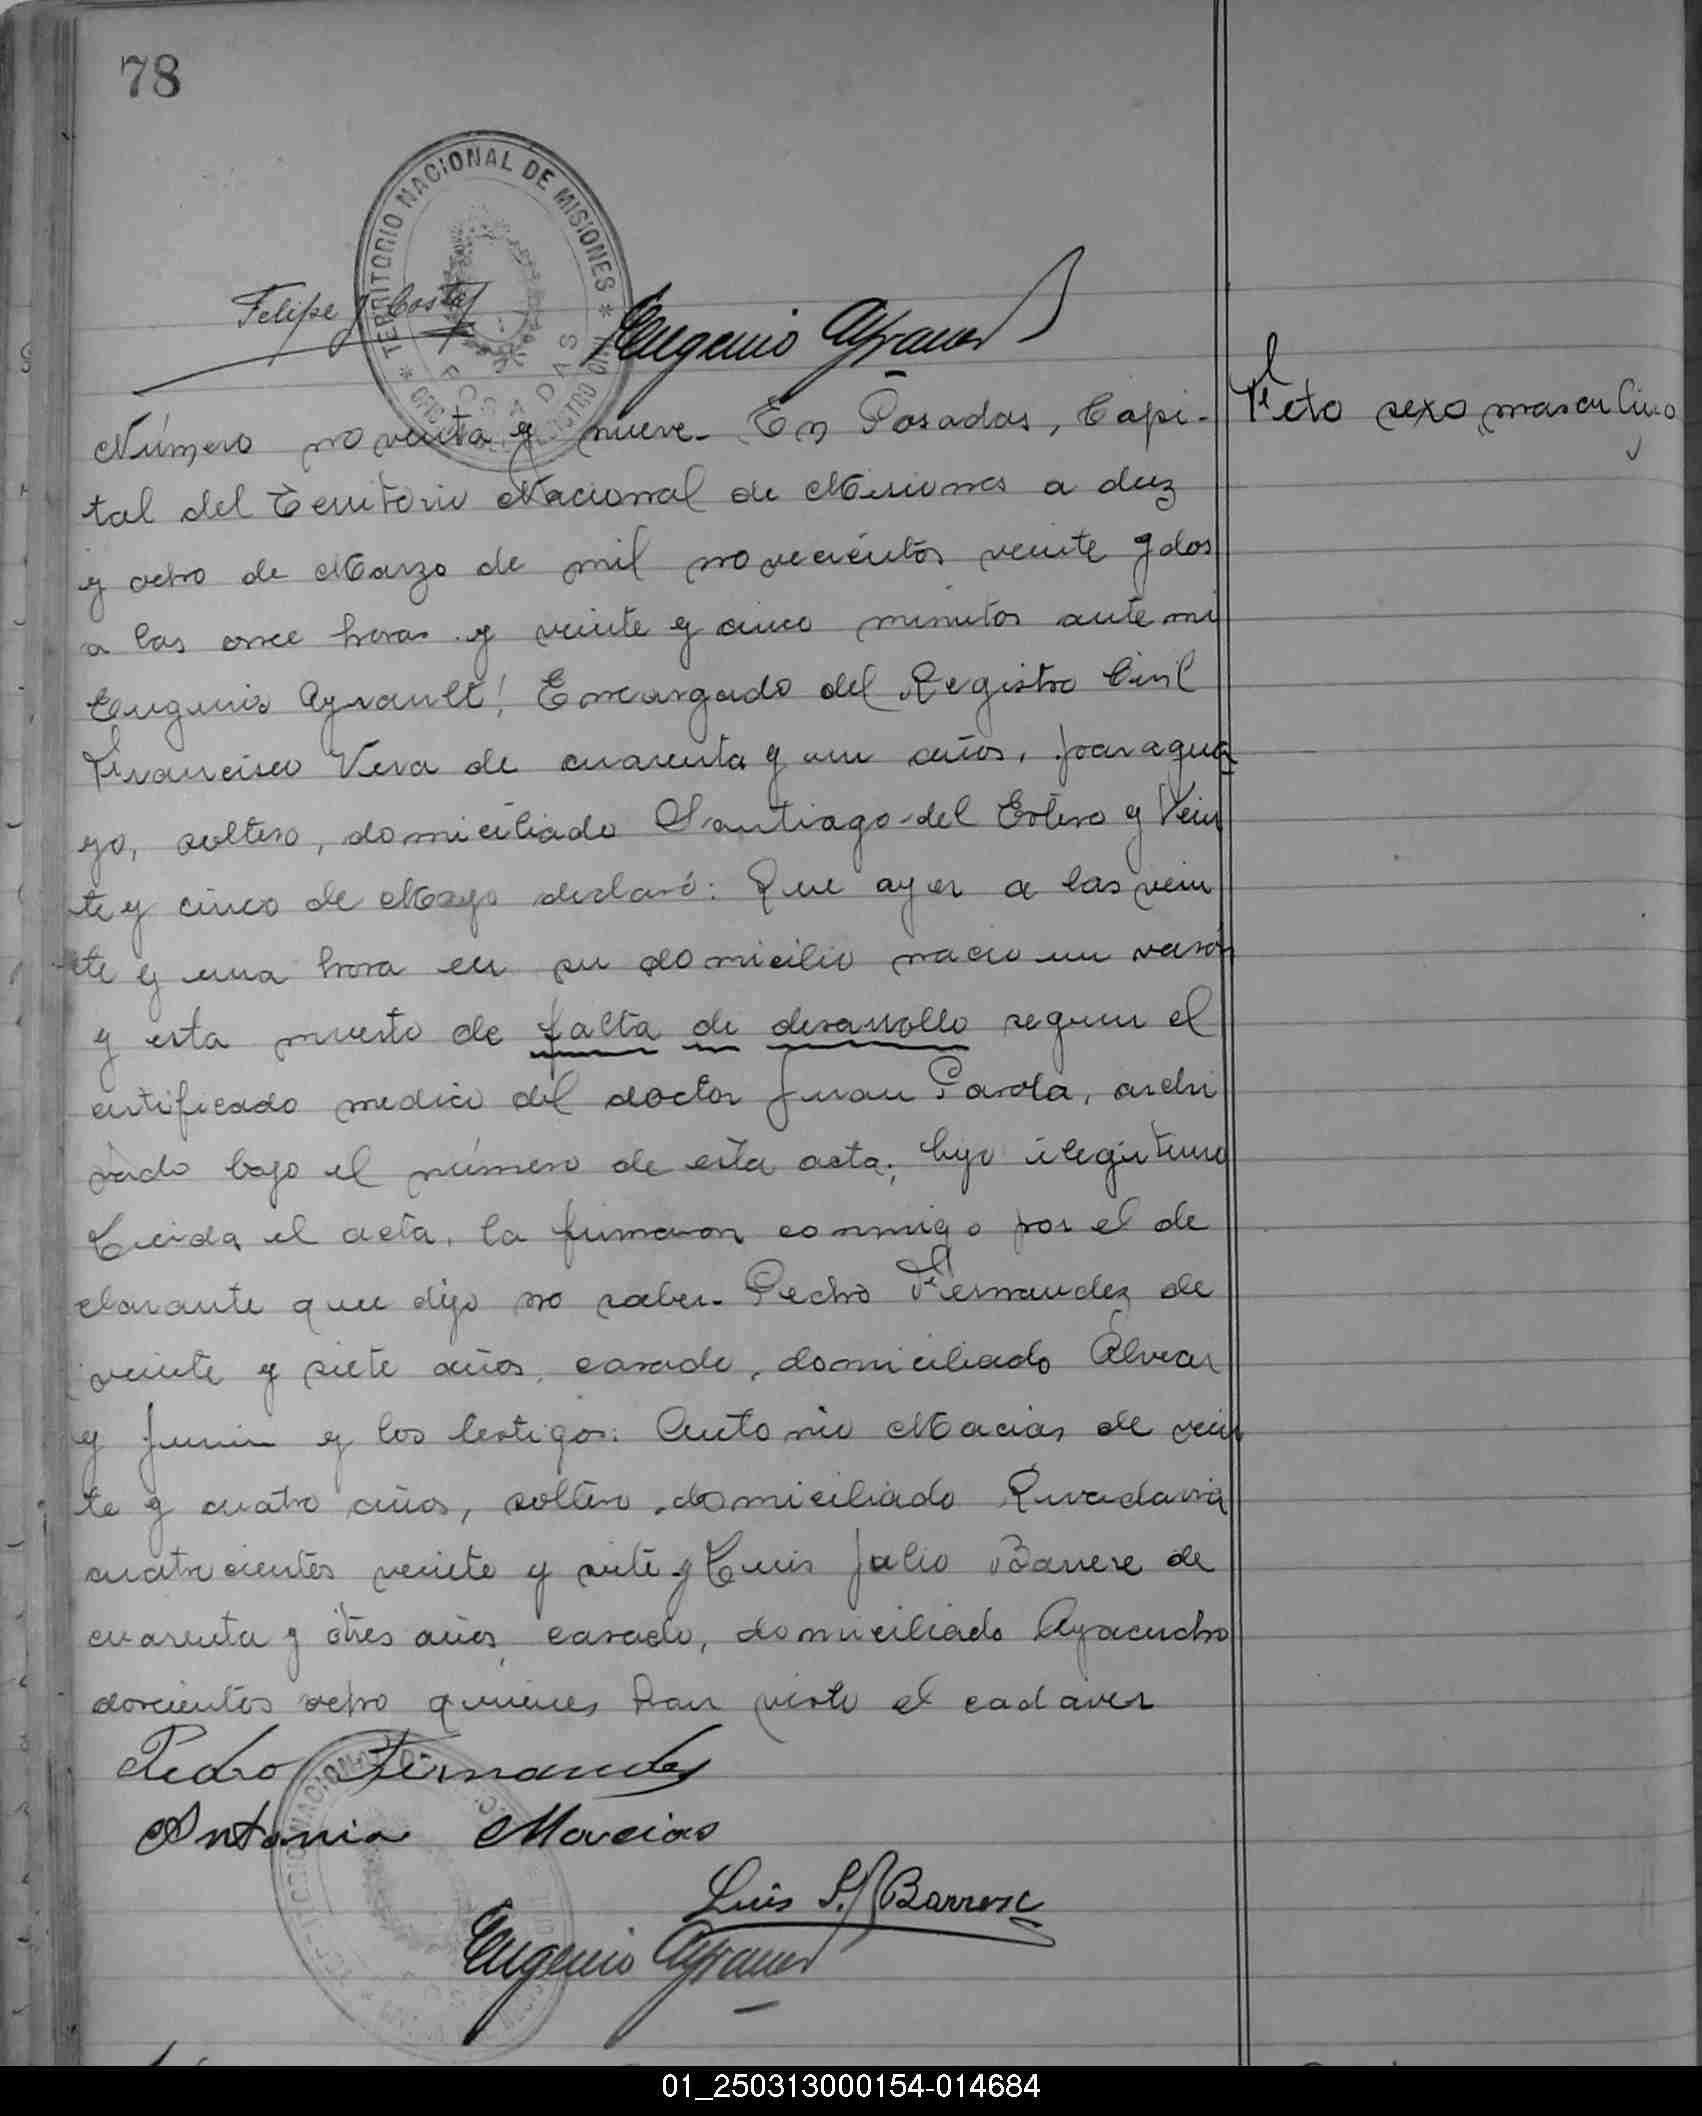 78
TERRITORIO NACIONAL DE MISIONES
POSADAS
Felipe J Costa
Eugenio Ayrault
Feto sexo masculino
Número noventa y nueve. En Posadas, Capi-
tal del Territorio Nacional de Misiones a diez
y ocho de Marzo de mil novecientos veinte y dos
a las once horas y veinte y cinco minutos ante mi
Eugenio Ayrault, Encargado del Registro Civil
Francisco Vera de cuarenta y un años, paragua
yo, soltero, domiciliado Santiago del Estero y Vein
te y cinco de Mayo declaró: Que ayer a las vein
te y una hora en su domicilio nacio un varón
y esta muerto de falta de desarrollo segun el
certificado medico del doctor Juan Parola, archi
vado bajo el número de esta acta, hijo ilegitimo
Leida el acta, la firmaron conmigo por el de
clarante que dijo no saber. Pedro Fernandez de
veinte y siete años, casado, domiciliado Alvear
y Junin y los testigos: Antonio Macias de vein
te y cuatro años, soltero, domiciliado Rivadavia
cuatrocientos veinte y siete y Luis Julio Barrere de
cuarenta y tres años, casado, domiciliado Ayacucho
doscientos ocho quienes han visto el cadaver
Pedro Fernandez
Antonio Macias
Luis J. Barrere
Eugenio Ayrault
01_250313000154-014684